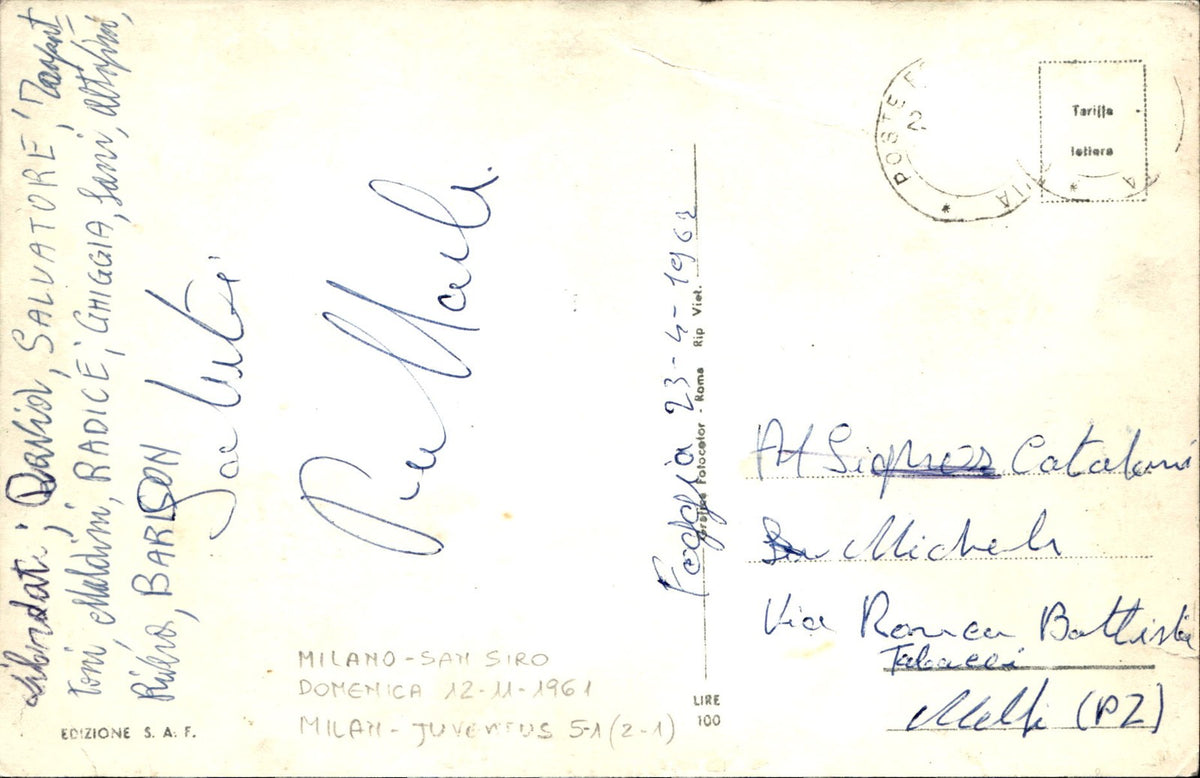 Liberalati; David, SALVATORE, Trapat
toni, Maldini, RADICE, GHIGGIA, Sani, Altafini,
Rivera, BARISON
MILANO - SAN SIRO
DOMENICA 12-11-1961
MILAN - JUVENTUS 5-1 (2-1)
EDIZIONE S. A. F.
Foggia 23-4-1962
Fotocolor - Roma Rip Viet.
LIRE
100
POSTE
Tariffa
lettere
Al Signor Catalani
Michele
Via Ronca Battista
Tabacchi
Melfi (PZ)